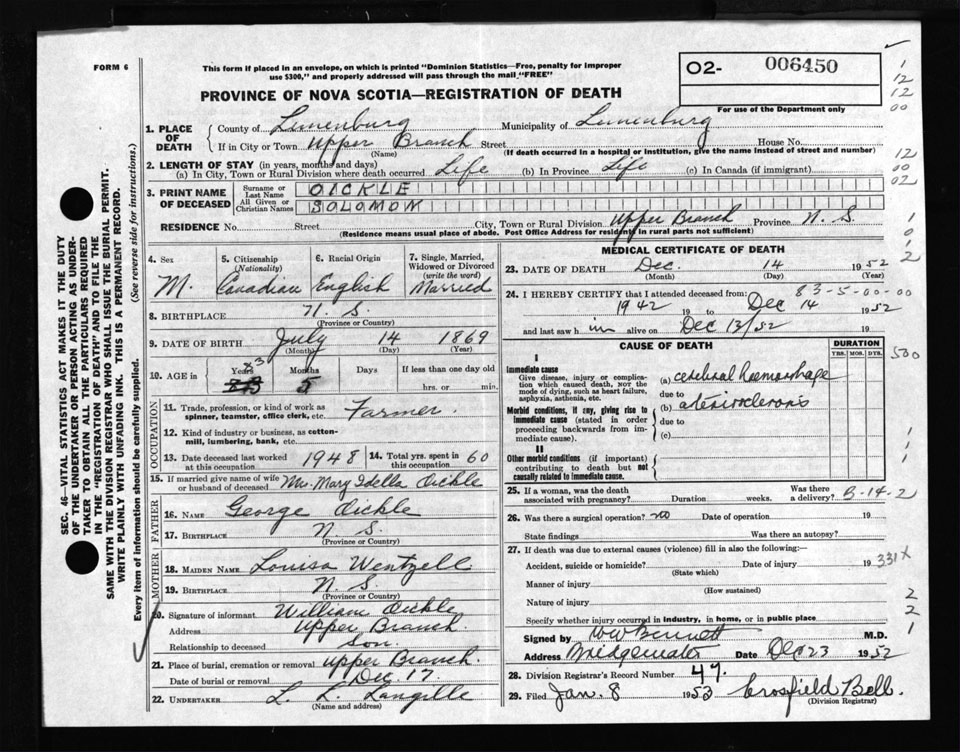 FORM 6
This form if placed in an envelope, on which is printed "Dominion Statistics—Free, penalty for improper
use $300," and properly addressed will pass through the mail "FREE"
PROVINCE OF NOVA SCOTIA—REGISTRATION OF DEATH
O2- 006450
For use of the Department only
1. PLACE OF DEATH
County of Lunenburg Municipality of Lunenburg
If in City or Town Upper Branch Street House No.
(Name) (If death occurred in a hospital or institution, give the name instead of street and number)
2. LENGTH OF STAY (in years, months and days)
(a) In City, Town or Rural Division where death occurred Life (b) In Province Life (c) In Canada (if immigrant)
3. PRINT NAME OF DECEASED
Surname or Last Name OICKLE
All Given or Christian Names SOLOMON
RESIDENCE No. Street City, Town or Rural Division Upper Branch Province N. S.
(Residence means usual place of abode. Post Office Address for residents in rural parts not sufficient)
4. Sex M.
5. Citizenship (Nationality) Canadian
6. Racial Origin English
7. Single, Married, Widowed or Divorced (write the word) Married
8. BIRTHPLACE N. S.
(Province or Country)
9. DATE OF BIRTH July 14 1869
(Month) (Day) (Year)
10. AGE in Years 83 Months 5 Days If less than one day old
hrs. or min.
OCCUPATION
11. Trade, profession, or kind of work as Farmer.
spinner, teamster, office clerk, etc.
12. Kind of industry or business, as cotton-
mill, lumbering, bank, etc.
13. Date deceased last worked at this occupation 1948
14. Total yrs. spent in this occupation 60
15. If married give name of wife or husband of deceased Mrs. Mary Idella Oickle
FATHER
16. NAME George Oickle
17. BIRTHPLACE N. S.
(Province or Country)
MOTHER
18. MAIDEN NAME Louisa Wentzell
19. BIRTHPLACE N. S.
(Province or Country)
20. Signature of informant William Oickle
Address Upper Branch.
Relationship to deceased Son
21. Place of burial, cremation or removal Upper Branch.
Date of burial or removal Dec. 17.
22. UNDERTAKER L. L. Langille
(Name and address)
MEDICAL CERTIFICATE OF DEATH
23. DATE OF DEATH Dec. 14 1952
(Month) (Day) (Year)
83-5-00-00
24. I HEREBY CERTIFY that I attended deceased from:
1942 19 to Dec 14 1952
and last saw him alive on Dec 13/52 19
CAUSE OF DEATH
DURATION
YRS. MOS. DYS.
I
Immediate cause
Give disease, injury or complication which caused death, NOT the mode of dying, such as heart failure, asphyxia, asthenia, etc.
(a) cerebral haemorrhage
due to
Morbid conditions, if any, giving rise to immediate cause (stated in order proceeding backwards from immediate cause).
(b) arteriosclerosis
due to
(c)
II
Other morbid conditions (if important) contributing to death but not causally related to immediate cause.
25. If a woman, was the death associated with pregnancy? Duration weeks. Was there a delivery? B-14-2
26. Was there a surgical operation? no Date of operation 19
State findings Was there an autopsy?
27. If death was due to external causes (violence) fill in also the following:—
Accident, suicide or homicide? Date of injury 19 331X
(State which)
Manner of injury
(How sustained)
Nature of injury
Specify whether injury occurred in industry, in home, or in public place
Signed by WW Bennett M.D.
Address Bridgewater Date Dec 23 1952
28. Division Registrar's Record Number 49.
29. Filed Jan. 8 1953 Crosfield Bell.
(Division Registrar)
1
12
12
00
12
00
02
1
0
1
2
500
1
1
1
2
2
1
SEC. 46—VITAL STATISTICS ACT MAKES IT THE DUTY
OF THE UNDERTAKER OR PERSON ACTING AS UNDER-
TAKER TO OBTAIN ALL THE PARTICULARS REQUIRED
IN THE "REGISTRATION OF DEATH" AND TO FILE THE
SAME WITH THE DIVISION REGISTRAR WHO SHALL ISSUE THE BURIAL PERMIT.
WRITE PLAINLY WITH UNFADING INK. THIS IS A PERMANENT RECORD.
Every item of information should be carefully supplied. (See reverse side for instructions.)